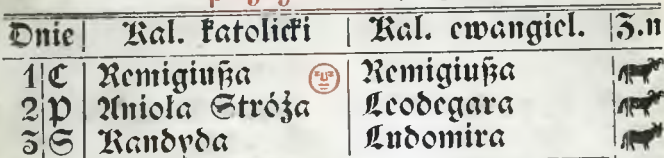 Dnie | Kal. katolicki | Kal. ewangiel. | Z.n
1 C Remigiuſza Remigiuſza
2 P Anioła Stróża Leodegara
3 S Kandyda Ludomira